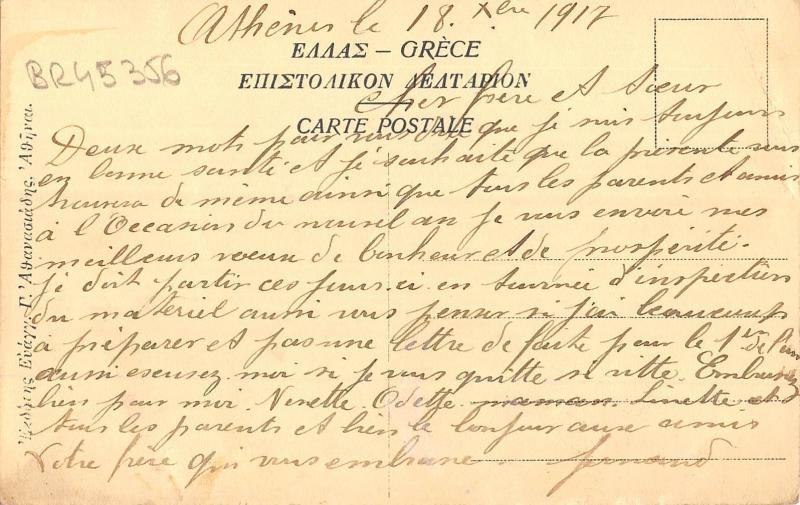 Athènes le 18 Xbre 1917
BR45356
ΕΛΛΑΣ – GRÈCE
ΕΠΙΣΤΟΛΙΚΟΝ ΔΕΛΤΑΡΙΟΝ
CARTE POSTALE
Cher frère et Sœur
Deux mots pour vous dire que je suis toujours
en bonne santé et je souhaite que la présente vous
trouvera de même ainsi que tous les parents et amis
à l'Occasion du nouvel an je vous envoie mes
meilleurs vœux de bonheur et de prospérité.
je doit partir ces jours ci en tournée d'inspection
du matériel aussi vous penser si j'ai beaucoup
à préparer et pas une lettre de faite pour le 1er de l'an
aussi escusez moi si je vous quitte si vitte. Embrassez
bien pour moi. Nenette. Odette. maman. Linette et
tous les parents et bien le bonjour aux amis
Votre frère qui vous embrasse. Fernand
Ἐκδότης Εὐάγγ. Γ. Ἀθανασιάδης, Ἀθῆναι.